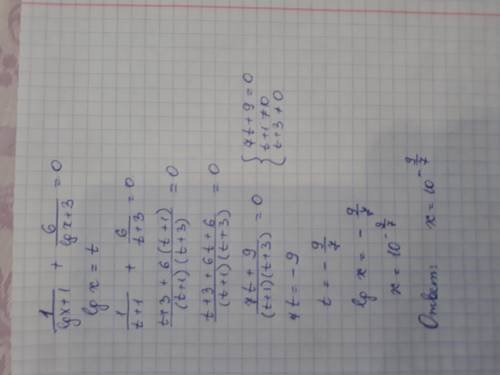 1/(lgx+1) + 6/(lgx+3) = 0
lgx = t
1/(t+1) + 6/(t+3) = 0
(t+3+6(t+1))/((t+1)(t+3)) = 0
(t+3+6t+6)/((t+1)(t+3)) = 0
(7t+9)/((t+1)(t+3)) = 0 { 7t+9=0
t+1≠0
t+3≠0
7t = -9
t = -9/7
lgx = -9/7
x = 10^(-9/7)
Ответ: x = 10^(-9/7)